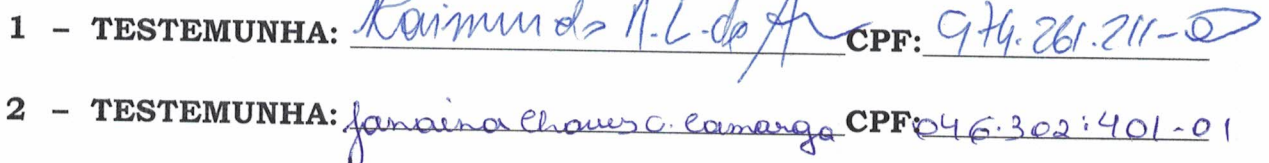 1 - TESTEMUNHA: Raimundo N. L. de A CPF: 974.261.211-
2 - TESTEMUNHA: Janaina Chaves C. Camargo CPF: 046.302.401-01